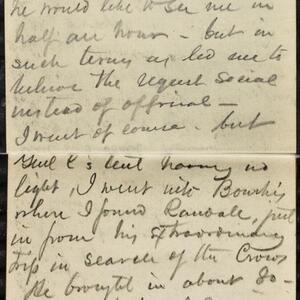 he would like to see me in
half an hour – but in
such terms as led me to
believe the request social
instead of official –
I went of course – but
Genl C's tent having no
light, I went into Bourke's
where I found Randall, just
in from his extraordinary
trip in search of the Crows
He brought in about 30–